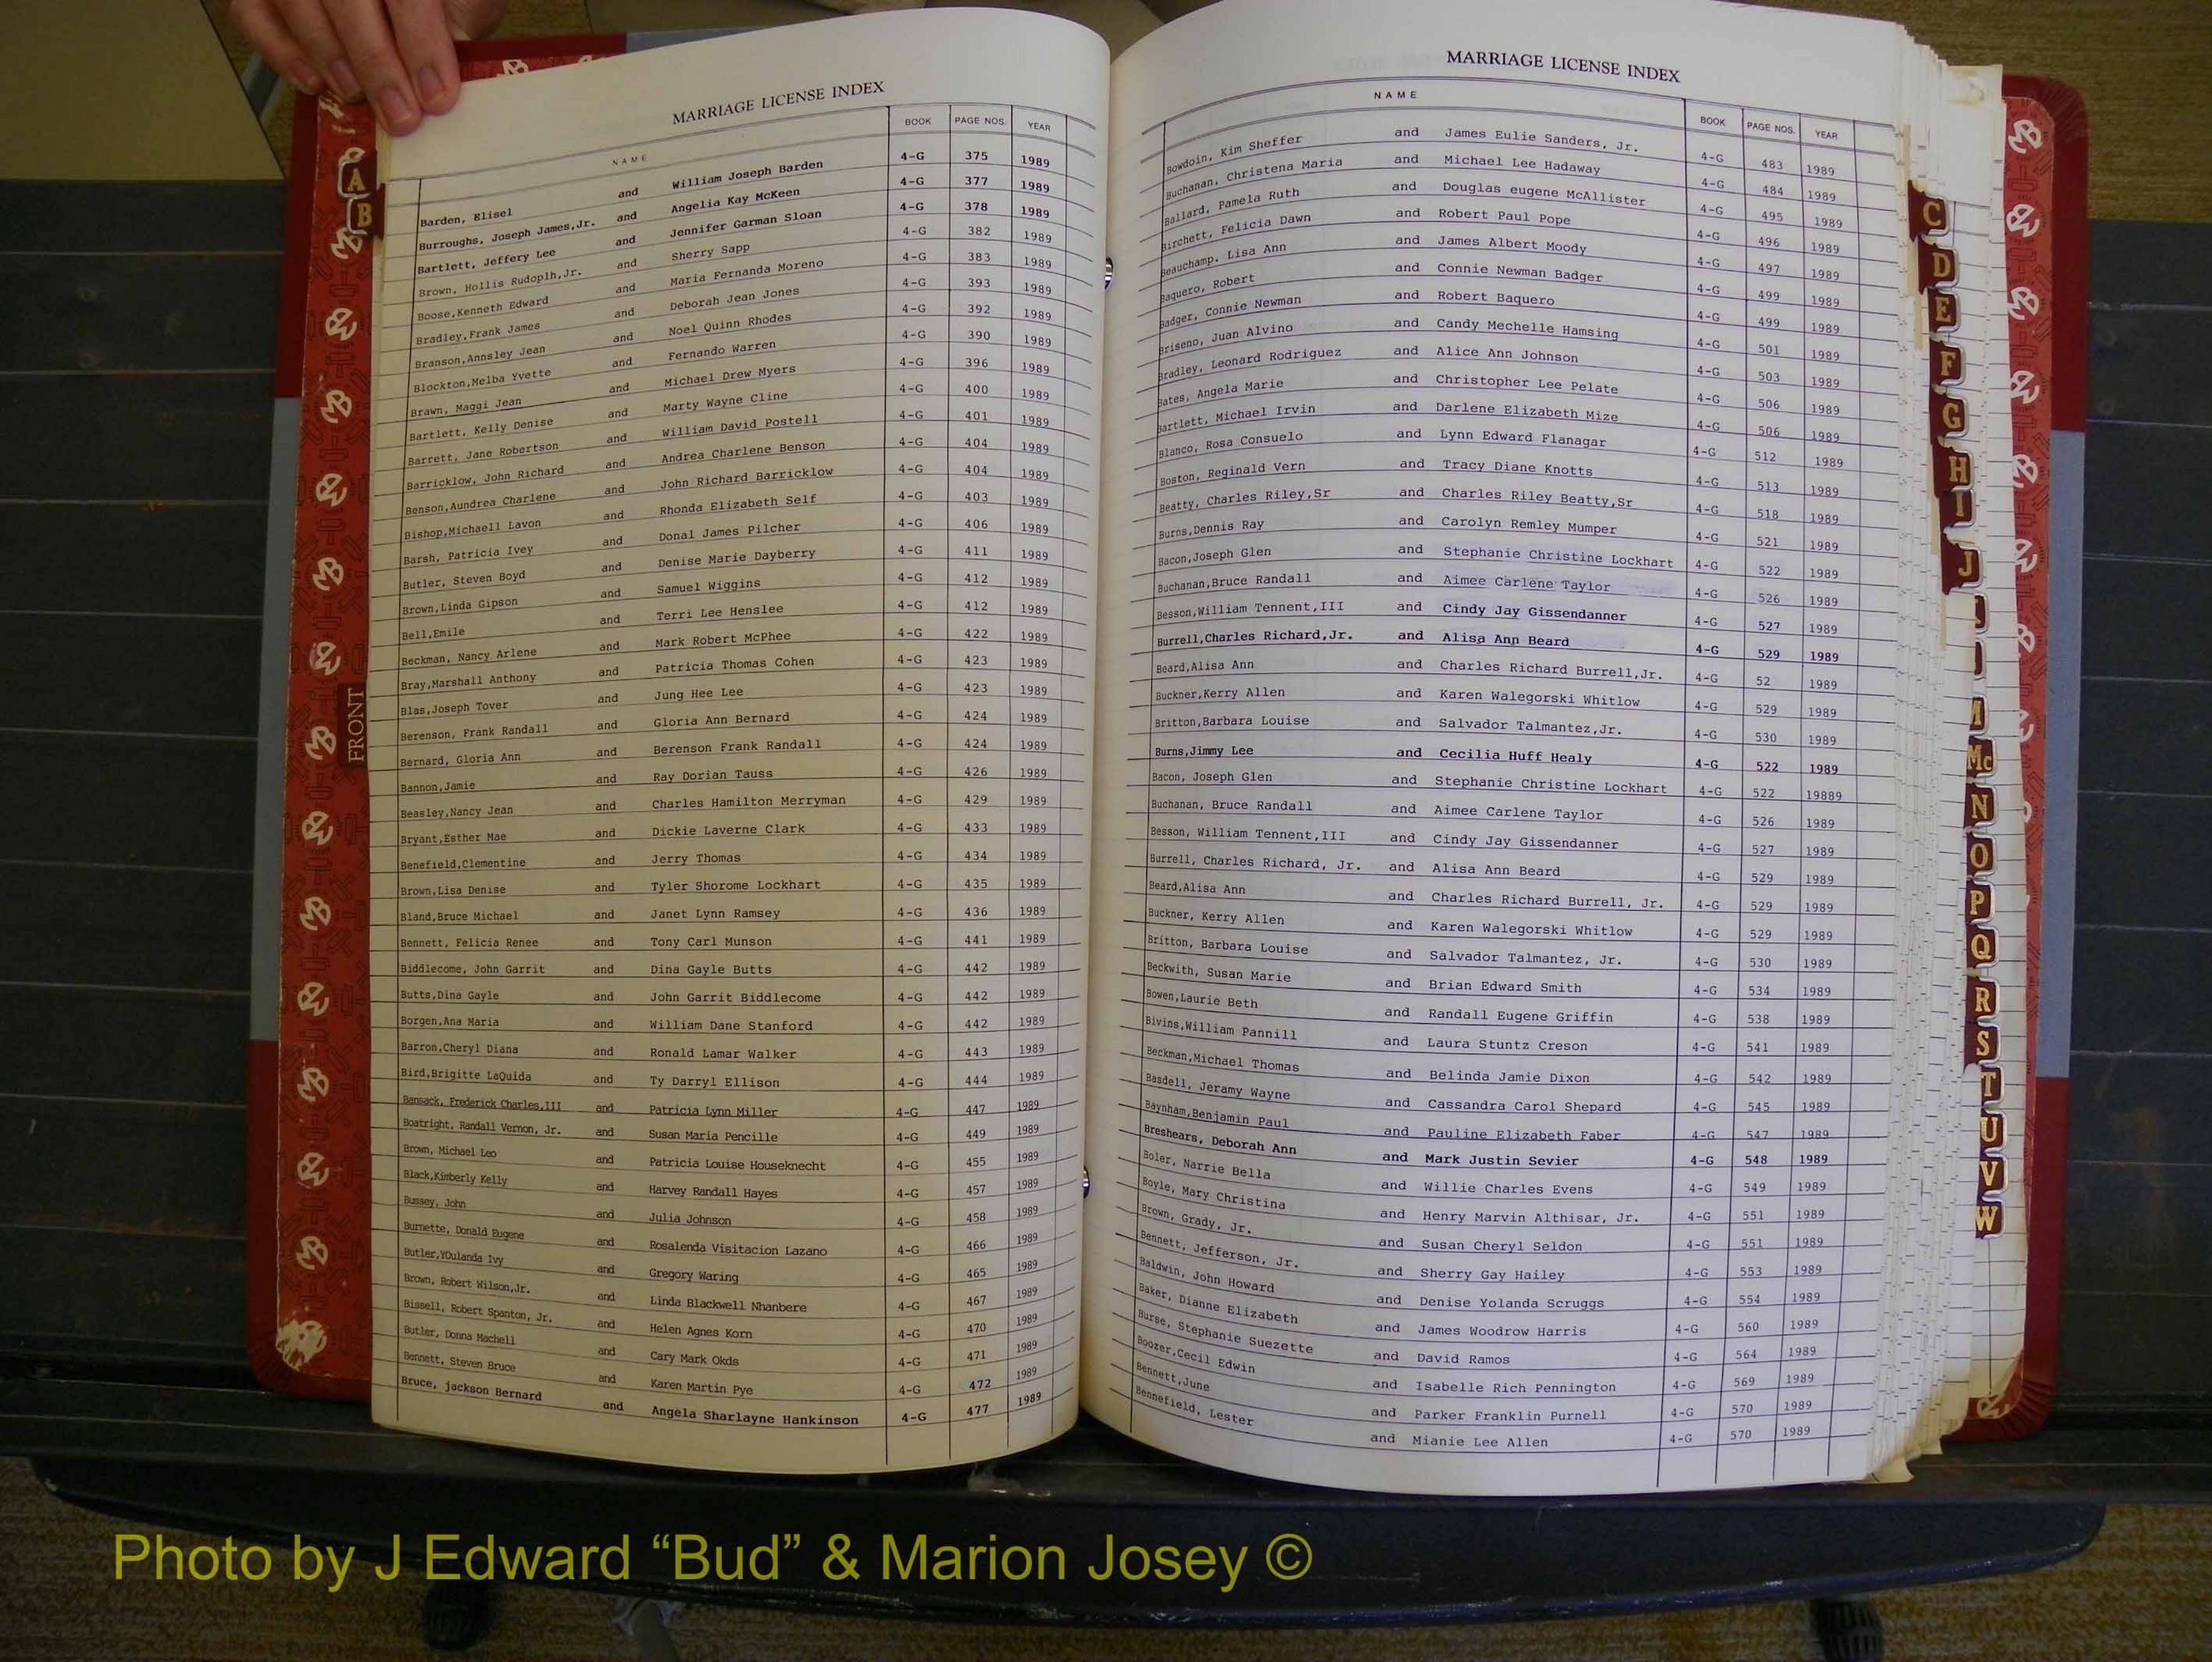 MARRIAGE LICENSE INDEX
NAME BOOK PAGE NOS. YEAR
Barden, Elisel and William Joseph Barden 4-G 375 1989
Burroughs, Joseph James,Jr. and Angelia Kay McKeen 4-G 377 1989
Bartlett, Jeffery Lee and Jennifer Garman Sloan 4-G 378 1989
Brown, Hollis Rudoplh,Jr. and Sherry Sapp 4-G 382 1989
Boose,Kenneth Edward and Maria Fernanda Moreno 4-G 383 1989
Bradley,Frank James and Deborah Jean Jones 4-G 393 1989
Branson,Annsley Jean and Noel Quinn Rhodes 4-G 392 1989
Blockton,Melba Yvette and Fernando Warren 4-G 390 1989
Brawn, Maggi Jean and Michael Drew Myers 4-G 396 1989
Bartlett, Kelly Denise and Marty Wayne Cline 4-G 400 1989
Barrett, Jane Robertson and William David Postell 4-G 401 1989
Barricklow, John Richard and Andrea Charlene Benson 4-G 404 1989
Benson,Aundrea Charlene and John Richard Barricklow 4-G 404 1989
Bishop,Michaell Lavon and Rhonda Elizabeth Self 4-G 403 1989
Barsh, Patricia Ivey and Donal James Pilcher 4-G 406 1989
Butler, Steven Boyd and Denise Marie Dayberry 4-G 411 1989
Brown,Linda Gipson and Samuel Wiggins 4-G 412 1989
Bell,Emile and Terri Lee Henslee 4-G 412 1989
Beckman, Nancy Arlene and Mark Robert McPhee 4-G 422 1989
Bray,Marshall Anthony and Patricia Thomas Cohen 4-G 423 1989
Blas,Joseph Tover and Jung Hee Lee 4-G 423 1989
Berenson, Frank Randall and Gloria Ann Bernard 4-G 424 1989
Bernard, Gloria Ann and Berenson Frank Randall 4-G 424 1989
Bannon,Jamie and Ray Dorian Tauss 4-G 426 1989
Beasley,Nancy Jean and Charles Hamilton Merryman 4-G 429 1989
Bryant,Esther Mae and Dickie Laverne Clark 4-G 433 1989
Benefield,Clementine and Jerry Thomas 4-G 434 1989
Brown,Lisa Denise and Tyler Shorome Lockhart 4-G 435 1989
Bland,Bruce Michael and Janet Lynn Ramsey 4-G 436 1989
Bennett, Felicia Renee and Tony Carl Munson 4-G 441 1989
Biddlecome, John Garrit and Dina Gayle Butts 4-G 442 1989
Butts,Dina Gayle and John Garrit Biddlecome 4-G 442 1989
Borgen,Ana Maria and William Dane Stanford 4-G 442 1989
Barron,Cheryl Diana and Ronald Lamar Walker 4-G 443 1989
Bird,Brigitte LaQuida and Ty Darryl Ellison 4-G 444 1989
Bansack, Frederick Charles,III and Patricia Lynn Miller 4-G 447 1989
Boatright, Randall Vernon, Jr. and Susan Maria Pencille 4-G 449 1989
Brown, Michael Leo and Patricia Louise Houseknecht 4-G 455 1989
Black,Kimberly Kelly and Harvey Randall Hayes 4-G 457 1989
Bussey, John and Julia Johnson 4-G 458 1989
Burnette, Donald Eugene and Rosalenda Visitacion Lazano 4-G 466 1989
Butler,YOulanda Ivy and Gregory Waring 4-G 465 1989
Brown, Robert Wilson,Jr. and Linda Blackwell Nhanbere 4-G 467 1989
Bissell, Robert Spanton, Jr. and Helen Agnes Korn 4-G 470 1989
Butler, Donna Machell and Cary Mark Okds 4-G 471 1989
Bennett, Steven Bruce and Karen Martin Pye 4-G 472 1989
Bruce, jackson Bernard and Angela Sharlayne Hankinson 4-G 477 1989
MARRIAGE LICENSE INDEX
NAME BOOK PAGE NOS. YEAR
Bowdoin, Kim Sheffer and James Eulie Sanders, Jr. 4-G 483 1989
Buchanan, Christena Maria and Michael Lee Hadaway 4-G 484 1989
Ballard, Pamela Ruth and Douglas eugene McAllister 4-G 495 1989
Birchett, Felicia Dawn and Robert Paul Pope 4-G 496 1989
Beauchamp. Lisa Ann and James Albert Moody 4-G 497 1989
Baquero, Robert and Connie Newman Badger 4-G 499 1989
Badger, Connie Newman and Robert Baquero 4-G 499 1989
Briseno, Juan Alvino and Candy Mechelle Hamsing 4-G 501 1989
Bradley, Leonard Rodriguez and Alice Ann Johnson 4-G 503 1989
Bates, Angela Marie and Christopher Lee Pelate 4-G 506 1989
Bartlett, Michael Irvin and Darlene Elizabeth Mize 4-G 506 1989
Blanco, Rosa Consuelo and Lynn Edward Flanagar 4-G 512 1989
Boston, Reginald Vern and Tracy Diane Knotts 4-G 513 1989
Beatty, Charles Riley,Sr and Charles Riley Beatty,Sr 4-G 518 1989
Burns,Dennis Ray and Carolyn Remley Mumper 4-G 521 1989
Bacon,Joseph Glen and Stephanie Christine Lockhart 4-G 522 1989
Buchanan,Bruce Randall and Aimee Carlene Taylor 4-G 526 1989
Besson,William Tennent,III and Cindy Jay Gissendanner 4-G 527 1989
Burrell,Charles Richard,Jr. and Alisa Ann Beard 4-G 529 1989
Beard,Alisa Ann and Charles Richard Burrell,Jr. 4-G 52 1989
Buckner,Kerry Allen and Karen Walegorski Whitlow 4-G 529 1989
Britton,Barbara Louise and Salvador Talmantez,Jr. 4-G 530 1989
Burns,Jimmy Lee and Cecilia Huff Healy 4-G 522 1989
Bacon, Joseph Glen and Stephanie Christine Lockhart 4-G 522 19889
Buchanan, Bruce Randall and Aimee Carlene Taylor 4-G 526 1989
Besson, William Tennent,III and Cindy Jay Gissendanner 4-G 527 1989
Burrell, Charles Richard, Jr. and Alisa Ann Beard 4-G 529 1989
Beard,Alisa Ann and Charles Richard Burrell, Jr. 4-G 529 1989
Buckner, Kerry Allen and Karen Walegorski Whitlow 4-G 529 1989
Britton, Barbara Louise and Salvador Talmantez, Jr. 4-G 530 1989
Beckwith, Susan Marie and Brian Edward Smith 4-G 534 1989
Bowen,Laurie Beth and Randall Eugene Griffin 4-G 538 1989
Bivins,William Pannill and Laura Stuntz Creson 4-G 541 1989
Beckman,Michael Thomas and Belinda Jamie Dixon 4-G 542 1989
Basdell, Jeramy Wayne and Cassandra Carol Shepard 4-G 545 1989
Baynham,Benjamin Paul and Pauline Elizabeth Faber 4-G 547 1989
Breshears, Deborah Ann and Mark Justin Sevier 4-G 548 1989
Boler, Narrie Bella and Willie Charles Evens 4-G 549 1989
Boyle, Mary Christina and Henry Marvin Althisar, Jr. 4-G 551 1989
Brown, Grady, Jr. and Susan Cheryl Seldon 4-G 551 1989
Bennett, Jefferson, Jr. and Sherry Gay Hailey 4-G 553 1989
Baldwin, John Howard and Denise Yolanda Scruggs 4-G 554 1989
Baker, Dianne Elizabeth and James Woodrow Harris 4-G 560 1989
Burse, Stephanie Suezette and David Ramos 4-G 564 1989
Boozer,Cecil Edwin and Isabelle Rich Pennington 4-G 569 1989
Bennett,June and Parker Franklin Purnell 4-G 570 1989
Bennefield, Lester and Mianie Lee Allen 4-G 570 1989
A
B
FRONT
C
D
E
F
G
H
I
J
M
Mc
N
O
P
Q
R
S
T
U
V
W
Photo by J Edward “Bud” & Marion Josey ©